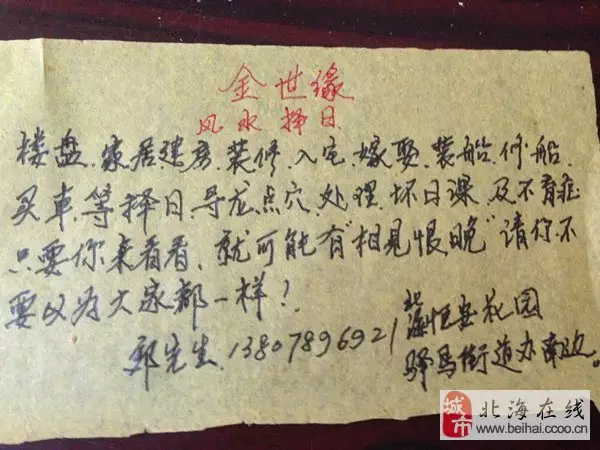 金世缘
风水择日
楼盘、家居建房、装修、入宅、嫁娶、装船、修船、
买车、等择日、寻龙点穴、处理、坏日课、及不育症
只要你来看看、就可能有"相见恨晚"请你不
要以为大家都一样！
郑先生 13807896921
北海恒安花园
驿马街道办南边。
城市
北海在线
www.beihai.ccoo.cn